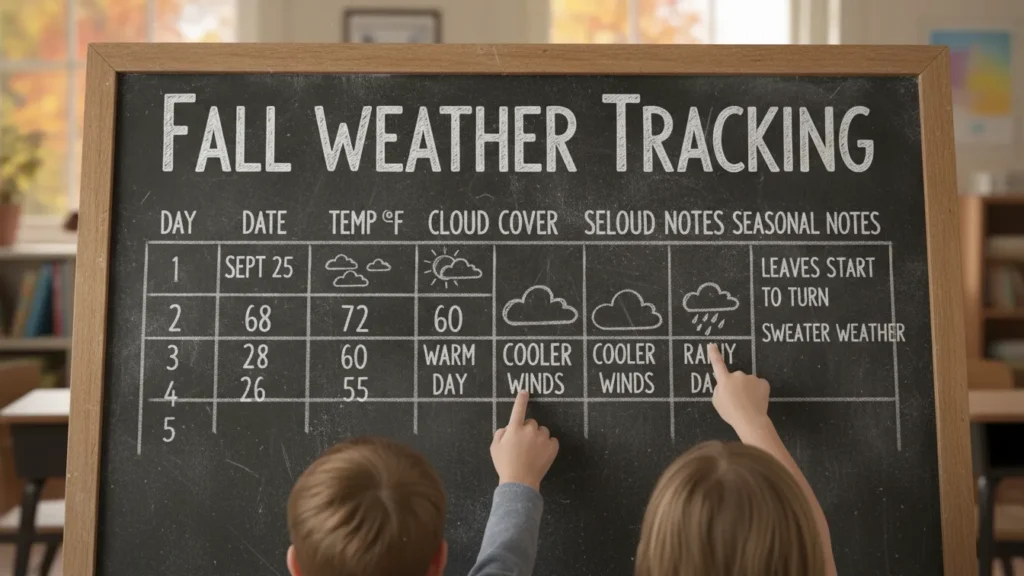 FALL WEATHER TRACKING
DAY DATE TEMP °F CLOUD COVER SELOUD NOTES SEASONAL NOTES
1 SEPT 25 LEAVES START
TO TURN
2 68 72 60
SWEATER WEATHER
3 28 60 WARM COOLER COOLER RAINY
4 26 55 DAY WINDS WINDS DAY
5